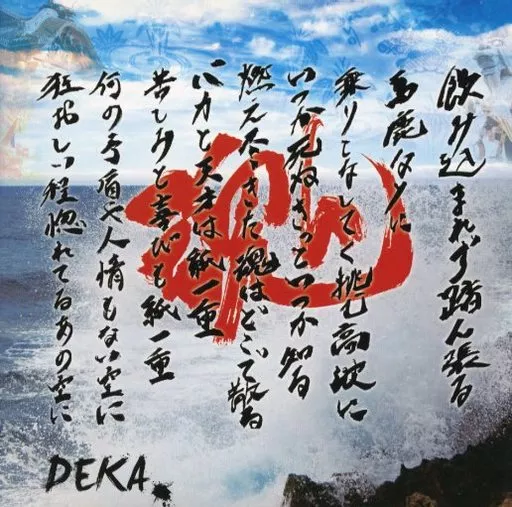 飲み込まれず踏ん張る
馬鹿なりに
乗りこなしてく挑む高波に
いつか死ぬきっといつか知る
燃え尽きた魂はどこで散る
バカと天才は紙一重
苦しみと喜びも紙一重
何の や人情もない空に
狂おしい程惚れてるあの空に
DEKA